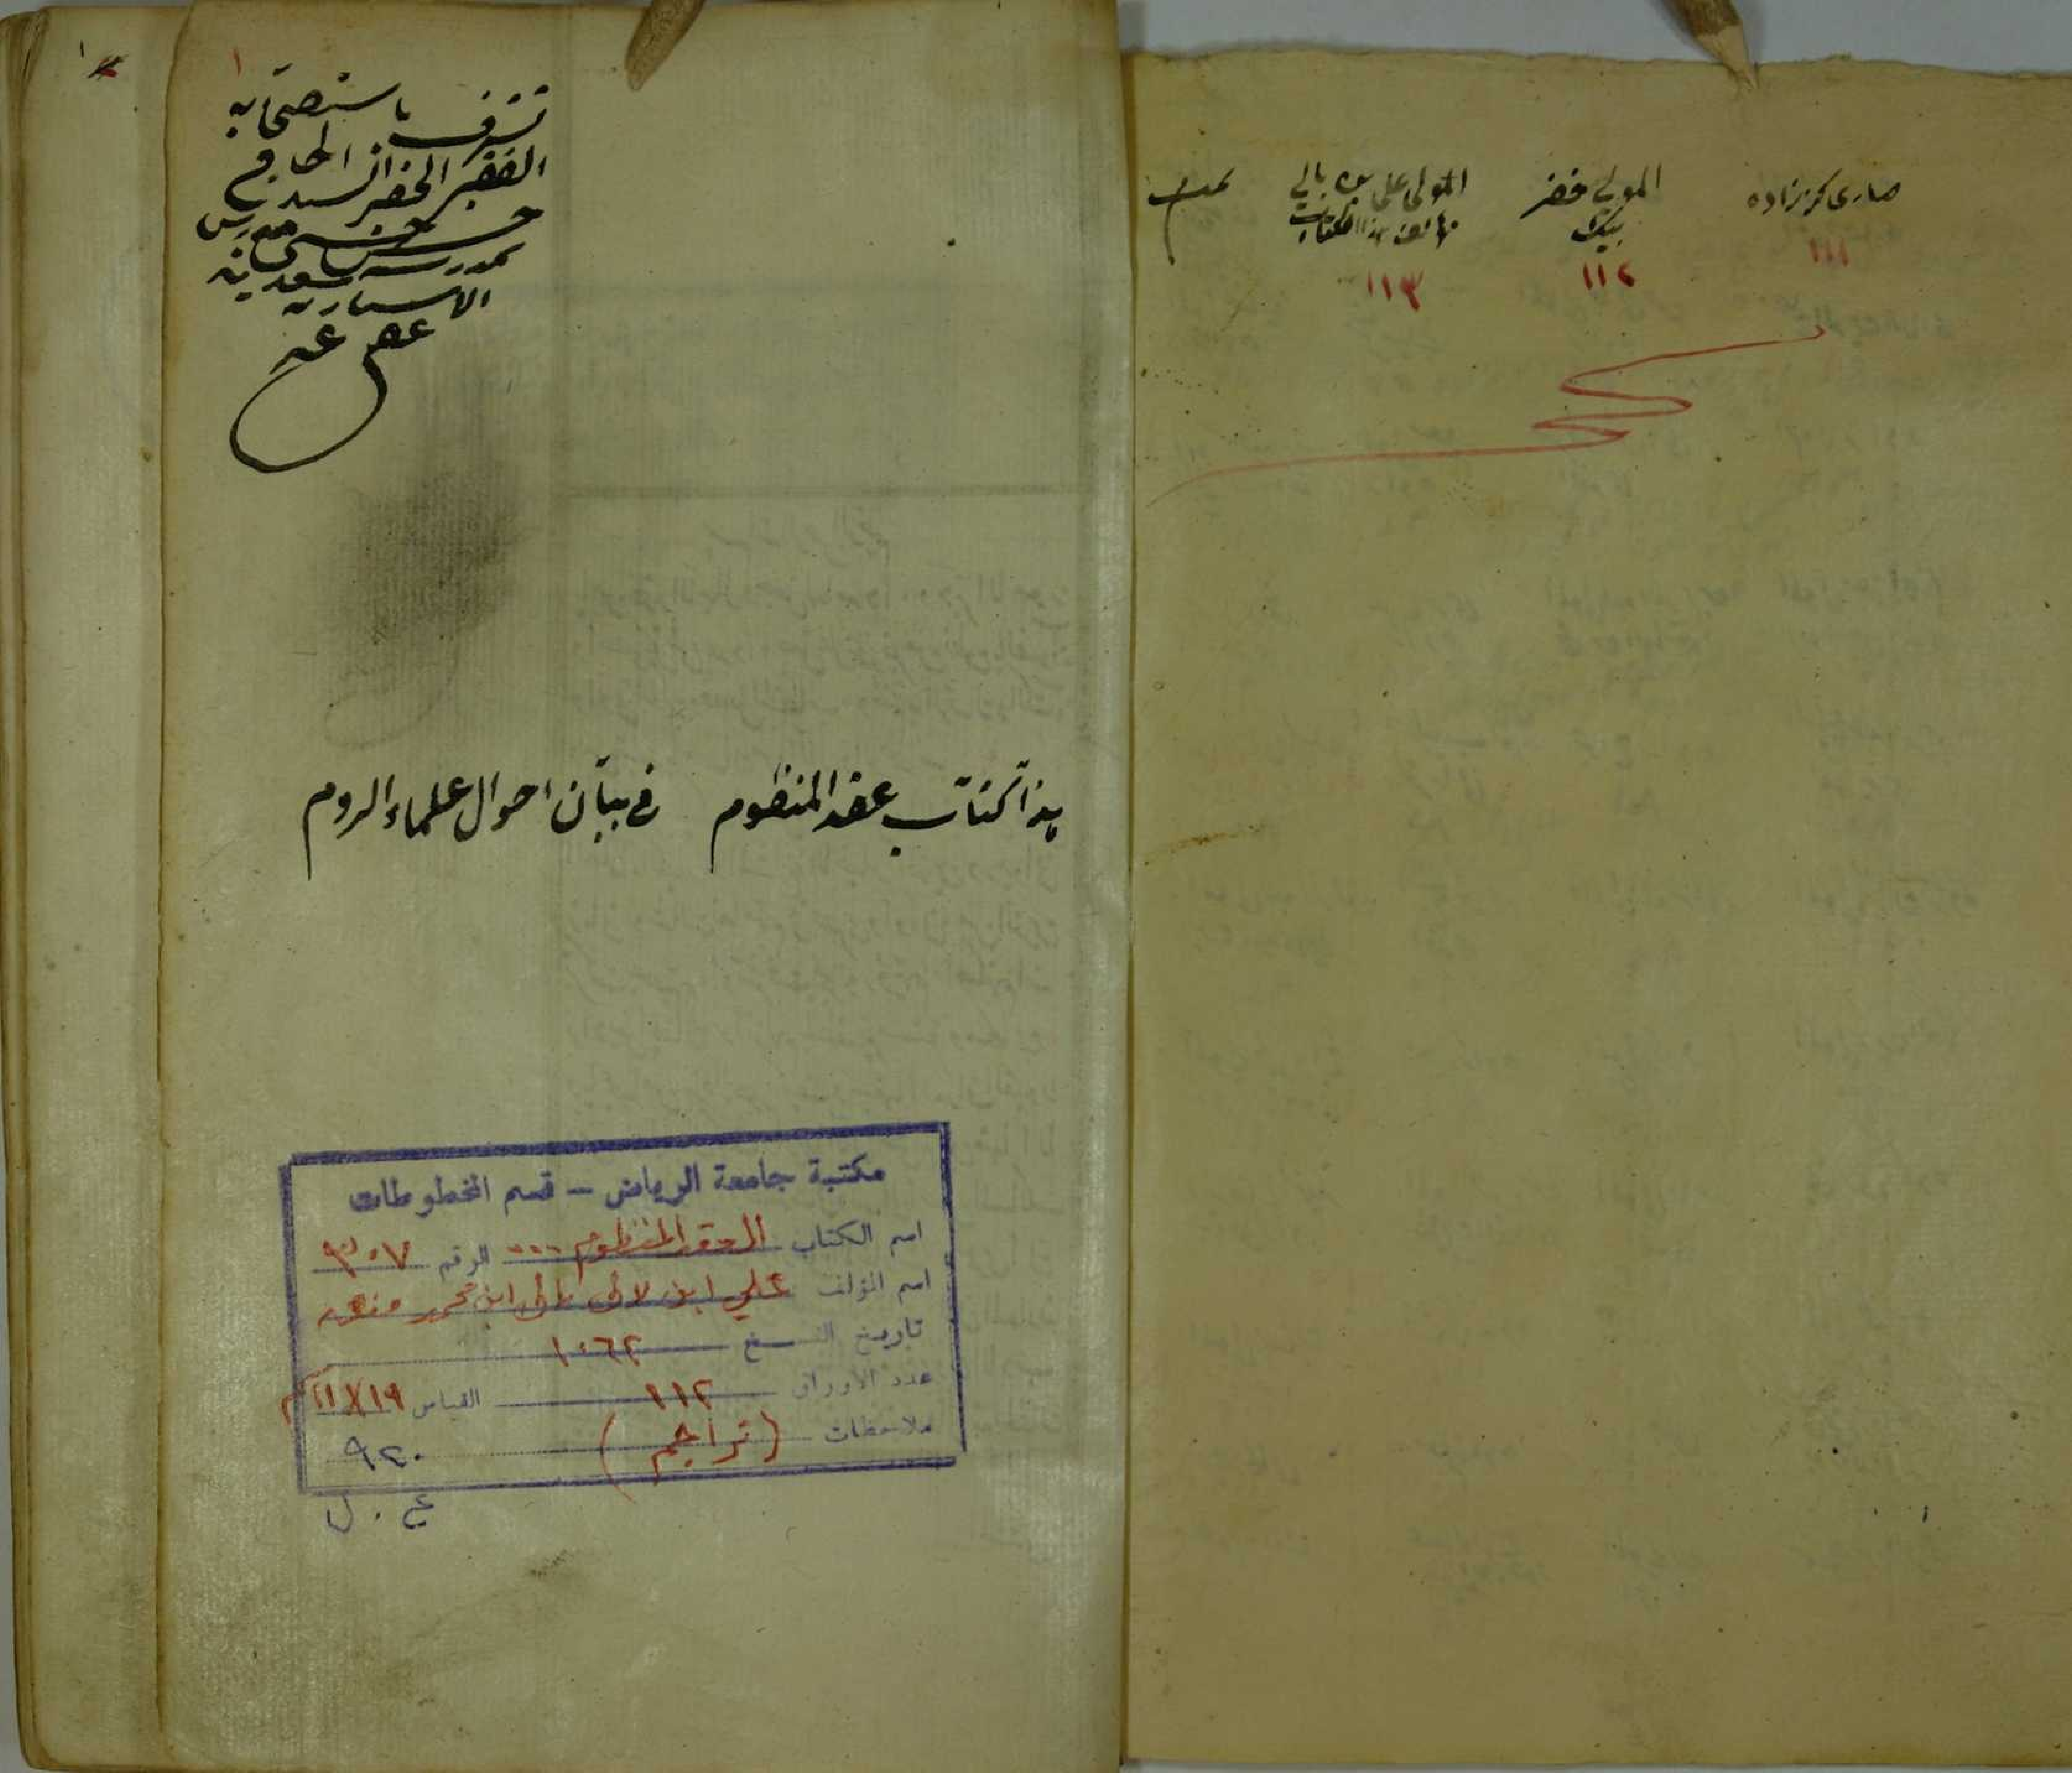 صاری كرززاده
١١١
المولى خضر
بيك
١١٢
المولى على بن بالي
مؤلف هذا الكتاب
١١٣
تمت
١
تشرف باستصحابه
الفقير الحقير السيد الحاج
حسن مدرس
بمدرسه سعديه
عفى عنه
هذا كتاب عقد المنظوم في بيان احوال علماء الروم
مكتبة جامعة الرياض – قسم المخطوطات
اسم الكتاب العقد المنظوم ... الرقم ٩٣٠٧
اسم المؤلف علي ابن لالى بالى ابن محمد منق
تاريخ النسخ ١٠٦٢
عدد الأوراق ١١٢ القياس ١٩×١١
ملاحظات (تراجم) ٩٢٠
ع . ل